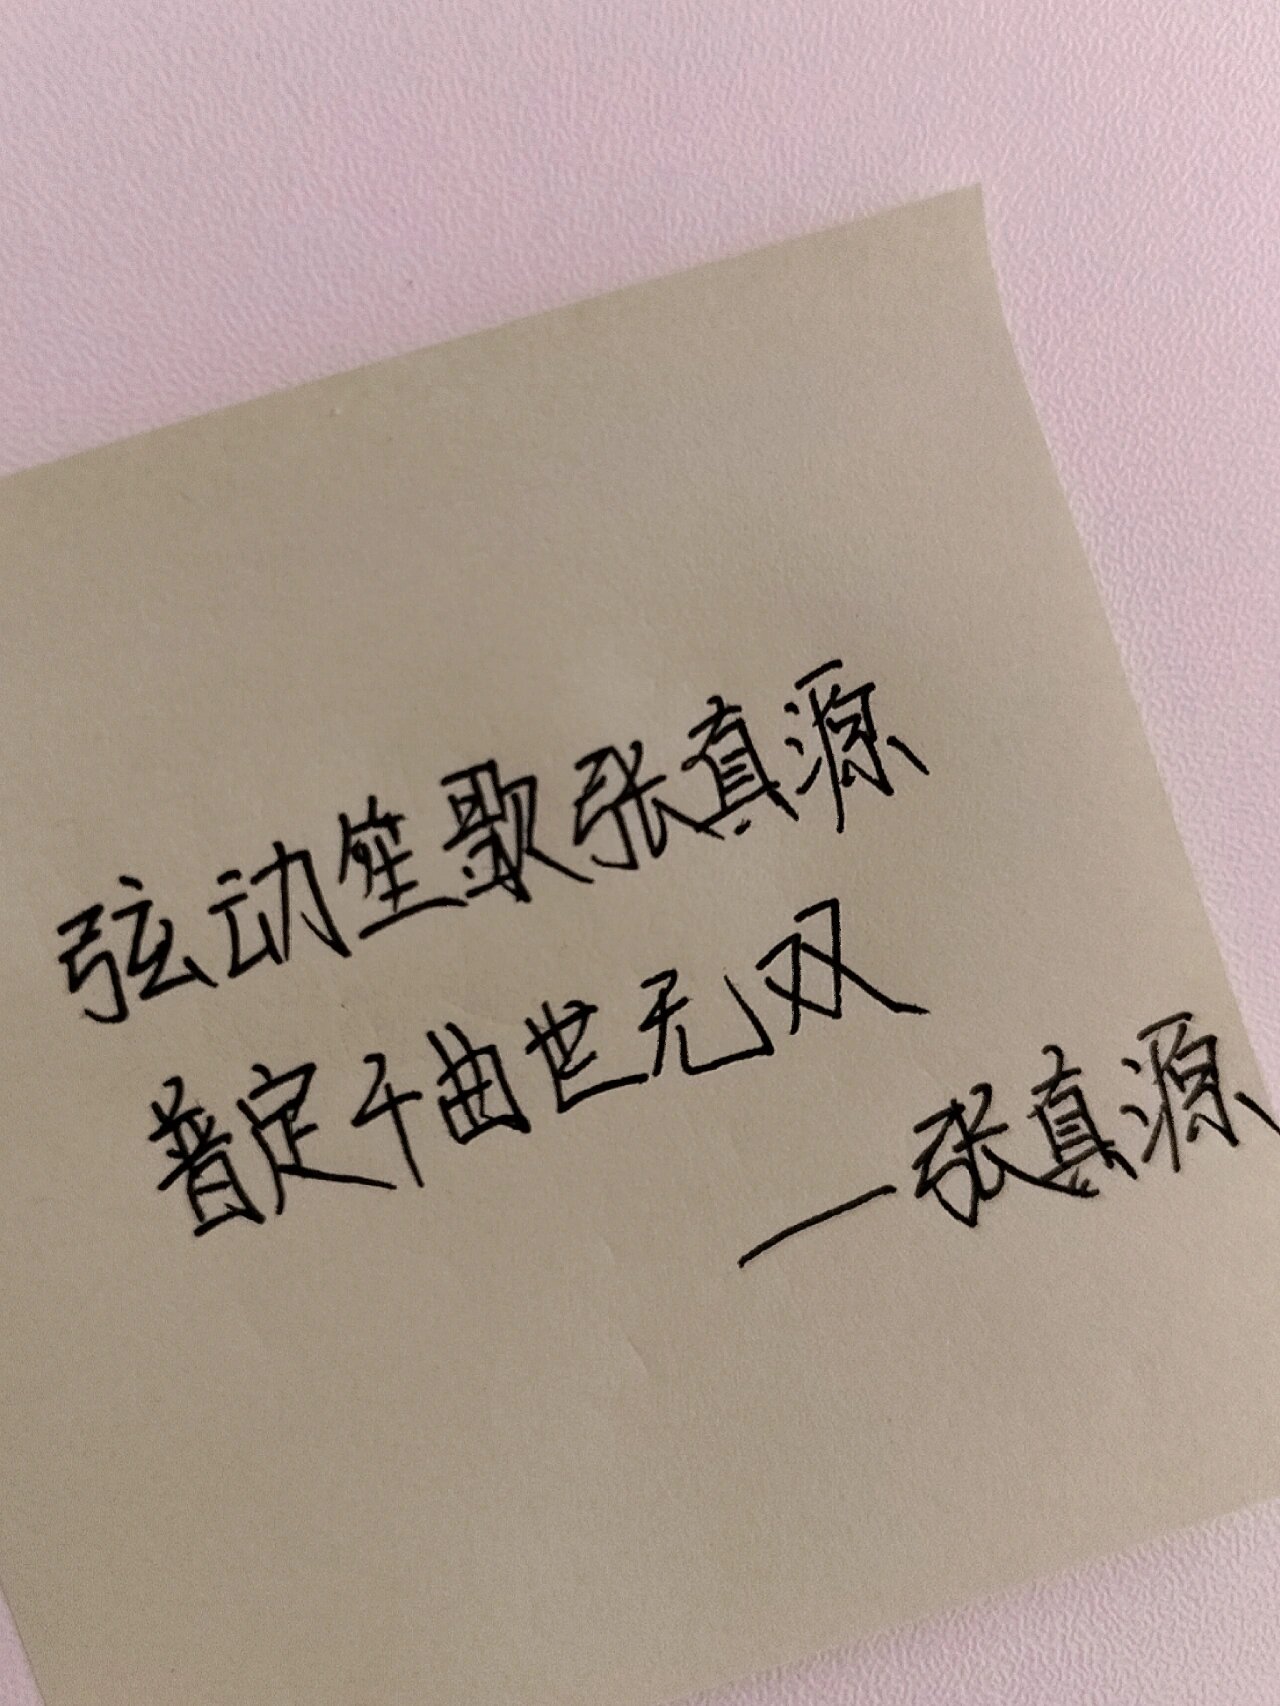 弦动笙歌张真源
普定千曲世无双
—张真源